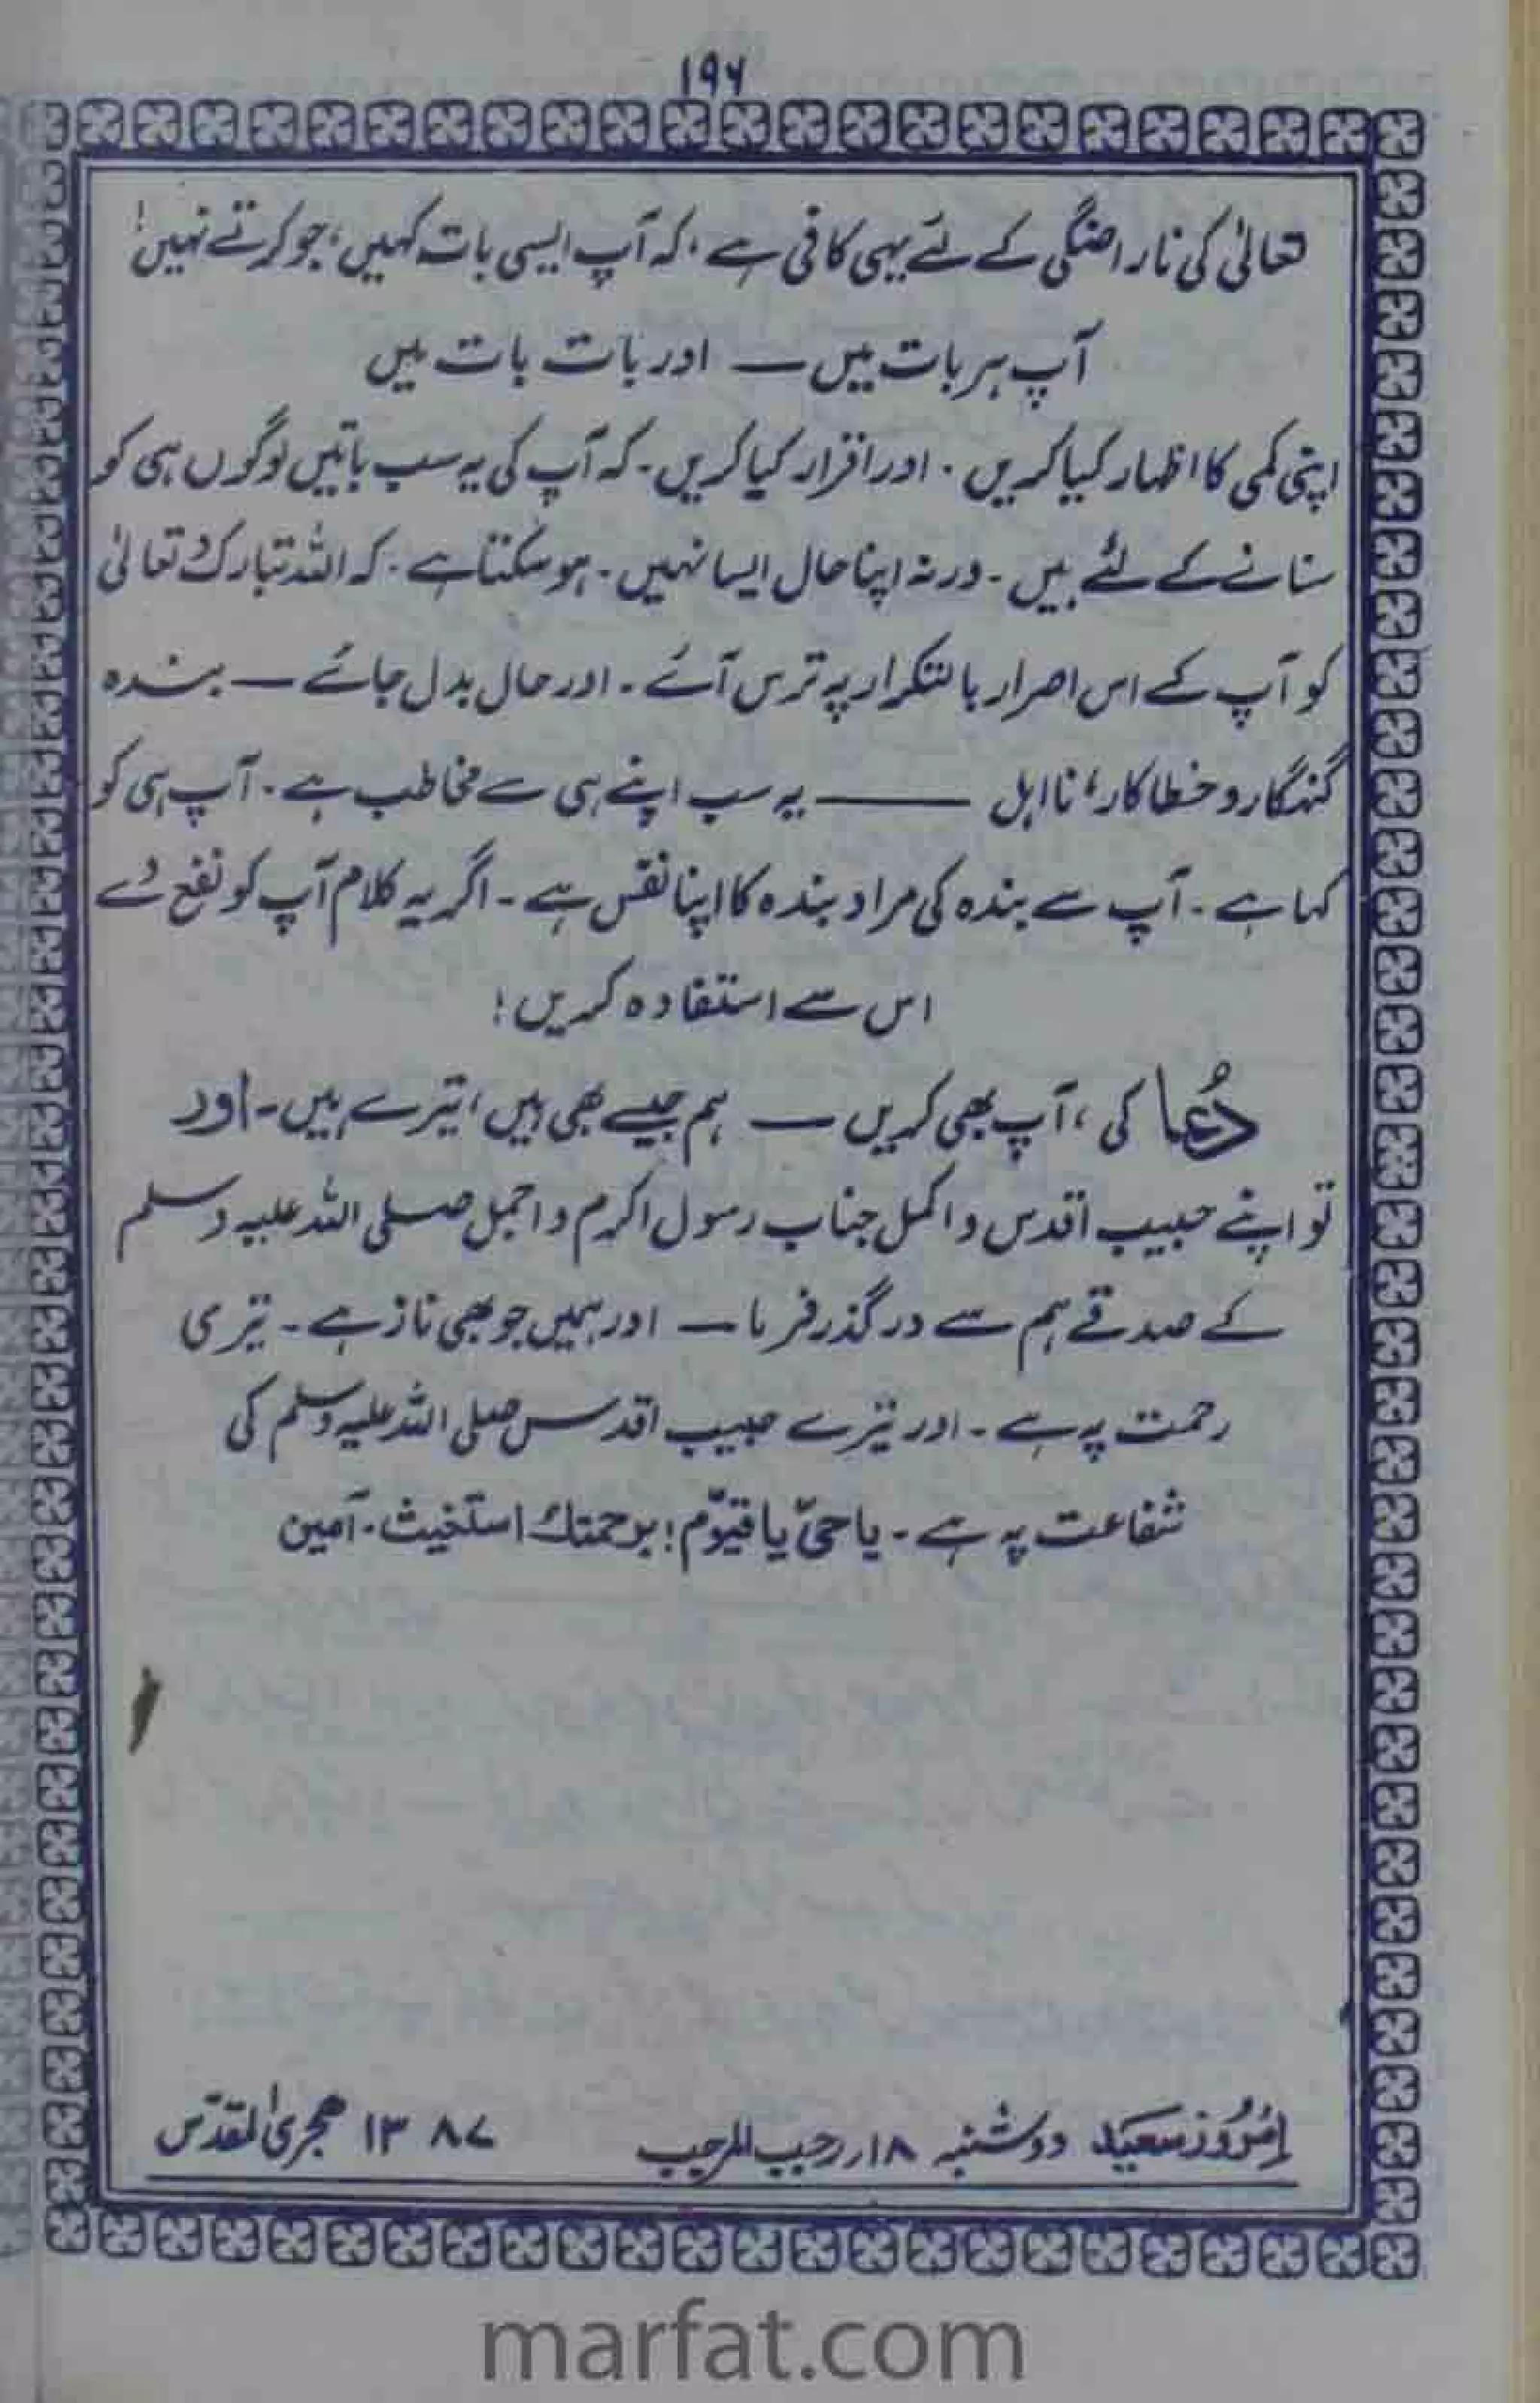 ۱۹۶
تعالیٰ کی ناراضگی کے لئے یہی کافی ہے، کہ آپ ایسی بات کہیں، جو کرتے نہیں!
آپ ہر بات میں — اور بات بات میں
اپنی کمی کا اظہار کیا کریں ۔ اور اقرار کیا کریں ۔ کہ آپ کی یہ سب باتیں لوگوں ہی کو
سنانے کے لئے ہیں ۔ ورنہ اپنا حال ایسا نہیں ۔ ہو سکتا ہے ۔ کہ اللہ تبارک و تعالیٰ
کو آپ کے اس اصرار بالتکرار پہ ترس آئے ۔ اور حال بدل جائے — بندہ
گنہگار و خطاکار، نااہل —— یہ سب اپنے ہی سے مخاطب ہے ۔ آپ ہی کو
کہا ہے ۔ آپ سے بندہ کی مراد بندہ کا اپنا نفس ہے ۔ اگر یہ کلام آپ کو نفع دے
اس سے استفادہ کریں !
دُعا کی ، آپ بھی کریں — ہم جیسے بھی ہیں، تیرے ہیں ۔ اور
تو اپنے حبیب اقدس و اکمل جناب رسول اکرم و اجمل صلی اللہ علیہ وسلم
کے صدقے ہم سے درگذر فرما — اور ہمیں جو بھی ناز ہے ۔ تیری
رحمت پہ ہے ۔ اور تیرے حبیب اقدس صلی اللہ علیہ وسلم کی
شفاعت پہ ہے ۔ یا حیّ یا قیّوم ! برحمتك استغیث ۔ آمین
اِمْرُوز سَعِیْد دوشنبہ ۱۸ر رجب المرجب ۱۳۸۷ ھجریٰ المقدّس
marfat.com